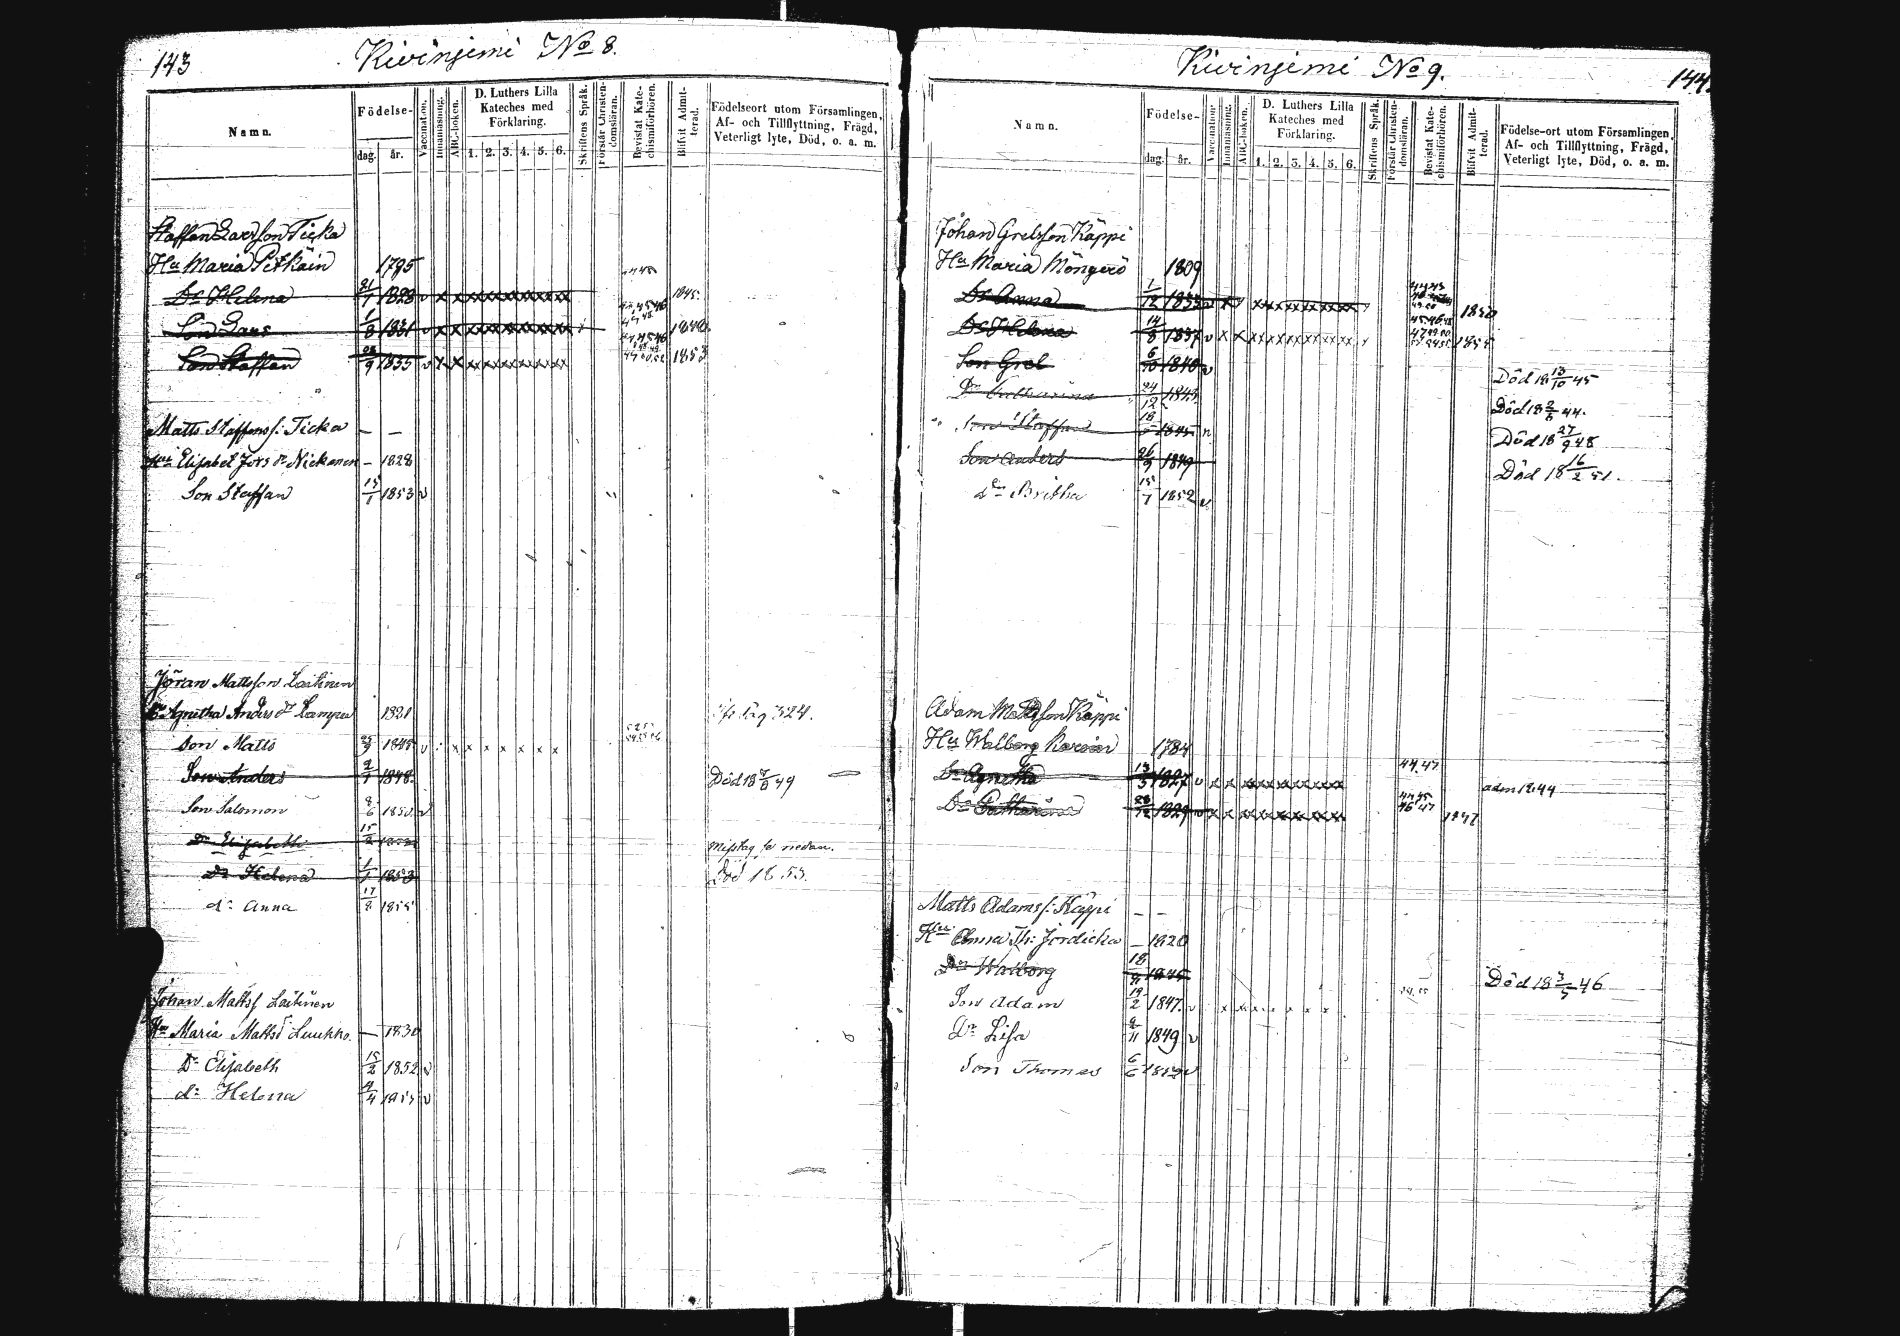 143
Kivinjemi No 8.
Namn.
Födelse-
dag.
år.
Vaccination.
Innanläsning.
ABC-boken.
D. Luthers Lilla
Kateches med
Förklaring.
1. 2. 3. 4. 5. 6.
Skriftens Språk.
Förstår Christen-
domsläran.
Bevistat Kate-
chismiförhören.
Blifvit Admit-
terad.
Födelseort utom Församlingen,
Af- och Tillflyttning, Frägd,
Veterligt lyte, Död, o. a. m.
Staffan Larsson Ticka
Hu Maria Pitkäin 1795
Dr Helena 21/1 1828 v x x x x x x x x x 1845
Son Lars 1/8 1831 v x x x x x x x x x
Son Staffan /9 1835 v x x x x x x x x x 1853
Matts Staffanss: Ticka — —
Hu Elisabet Jörs dr Nickanen — 1828
Son Staffan 15/1 1853 v
Jöran Mattsson Laitinen
Agnetha Anders dr Lampu 1821 324.
Son Matts 1845 v x x x x x x x
Son Anders 2/1 1848. Död 18 /8 49
Son Salomon 8/6 1850 v
Dr Elisabeth 15/2 nedan.
Dr Helena 1/1 1853 Död 1853.
dr Anna 17/8 1855
Johan Mattss Laitinen
Hu Maria Mattsd: Luukko. — 1830
Dr Elisabeth 15/2 1852 v
dr Helena 4/4 v
Kivinjemi No 9.
144.
Namn.
Födelse-
dag.
år.
Vaccination.
Innanläsning.
ABC-boken.
D. Luthers Lilla
Kateches med
Förklaring.
1. 2. 3. 4. 5. 6.
Skriftens Språk.
Förstår Christen-
domsläran.
Bevistat Kate-
chismiförhören.
Blifvit Admit-
terad.
Födelse-ort utom Församlingen,
Af- och Tillflyttning, Frägd,
Veterligt lyte, Död, o. a. m.
Johan Grelsson Käppi
Hu Maria Möngerö 1809
Dr Anna 1/12 1833 v x x x x x x x x 1850
Dr Helena 14/8 1837 v x x x x x x x x x 1855
Son Grel 6/10 1840 v Död 18 13/10 45
Dr Catharina 24/12 1843. Död 18 2/5 44.
Son Staffan 18/ 1845 Död 18 27/9 48
Son Anders 26/9 1849 Död 18 16/2 51.
Dr Britha 15/7 1852 v
Adam Mattsson Käppi
Hu Walborg 1784
Dr Agnetha 13/3 1827 v x x x x x x x x 44,47 adm 1844
Dr Catharina 28/12 1829 v x x x x x x x x 1847
Matts Adamss: Käppi — —
Hu Anna Th: Jördicka — 1820
Dr Walborg 18/ 1845 Död 18 3/5 46
Son Adam 19/2 1847. v x x x x x x
Dr Lisa 2/11 1849 v
Son Thomas 6/6 v